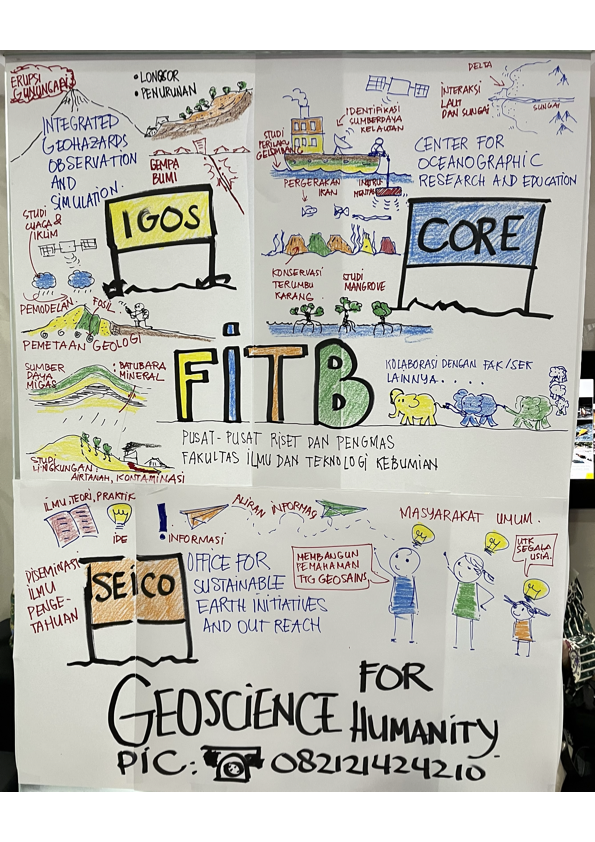 ERUPSI
GUNUNGAPI
• LONGSOR
• PENURUNAN
INTEGRATED
GEOHAZARDS
OBSERVATION
AND
SIMULATION.
GEMPA
BUMI
IGOS
STUDI
CUACA &
IKLIM
PEMODELAN
FOSIL
PEMETAAN GEOLOGI
SUMBER
DAYA
MIGAS
: BATUBARA
MINERAL
STUDI
LINGKUNGAN:
AIRTANAH, KONTAMINASI
IDENTIFIKASI
SUMBERDAYA
KELAUTAN
STUDI
PERILAKU
GELOMBANG
PERGERAKAN
IKAN
DELTA
INTERAKSI
LAUT
DAN SUNGAI
SUNGAI
CENTER FOR
OCEANOGRAPHIC
RESEARCH AND EDUCATION
CORE
KONSERVASI
TERUMBU
KARANG
STUDI
MANGROVE
FITB
KOLABORASI DENGAN FAK/SEK
LAINNYA.....
PUSAT-PUSAT RISET DAN PENGMAS
FAKULTAS ILMU DAN TEKNOLOGI KEBUMIAN
ILMU, TEORI, PRAKTIK
IDE
!
INFORMASI
ALIRAN INFORMASI
MASYARAKAT UMUM.
DISEMINASI
ILMU
PENGE-
TAHUAN
SEICO
OFFICE FOR
SUSTAINABLE
EARTH INITIATIVES
AND OUT REACH
MEMBANGUN
PEMAHAMAN
TTG GEOSAINS
UTK
SEGALA
USIA.
GEOSCIENCE FOR HUMANITY
PIC: 082121424210